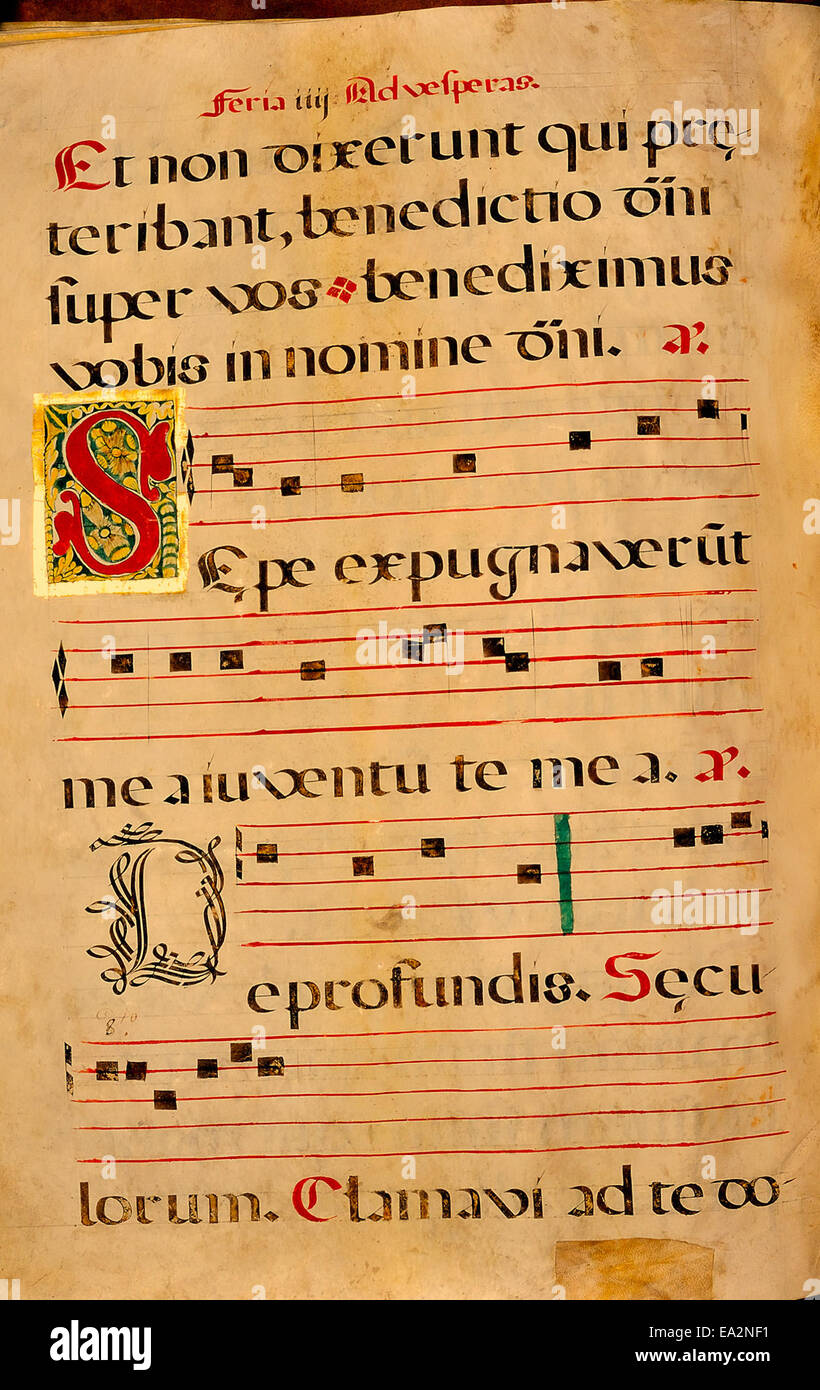 feria iiij Ad vesperas.
Et non dixerunt qui prę-
teribant, benedictio dn̄i
super vos benediximus
vobis in nomine dn̄i. a.
S ępe expugnaverūt
me a iuventu te me a. a.
D e profundis. Sęcu-
8.
lorum. Clamavi ad te do-
alamy
alamy
alamy
alamy
Image ID: EA2NF1
www.alamy.com